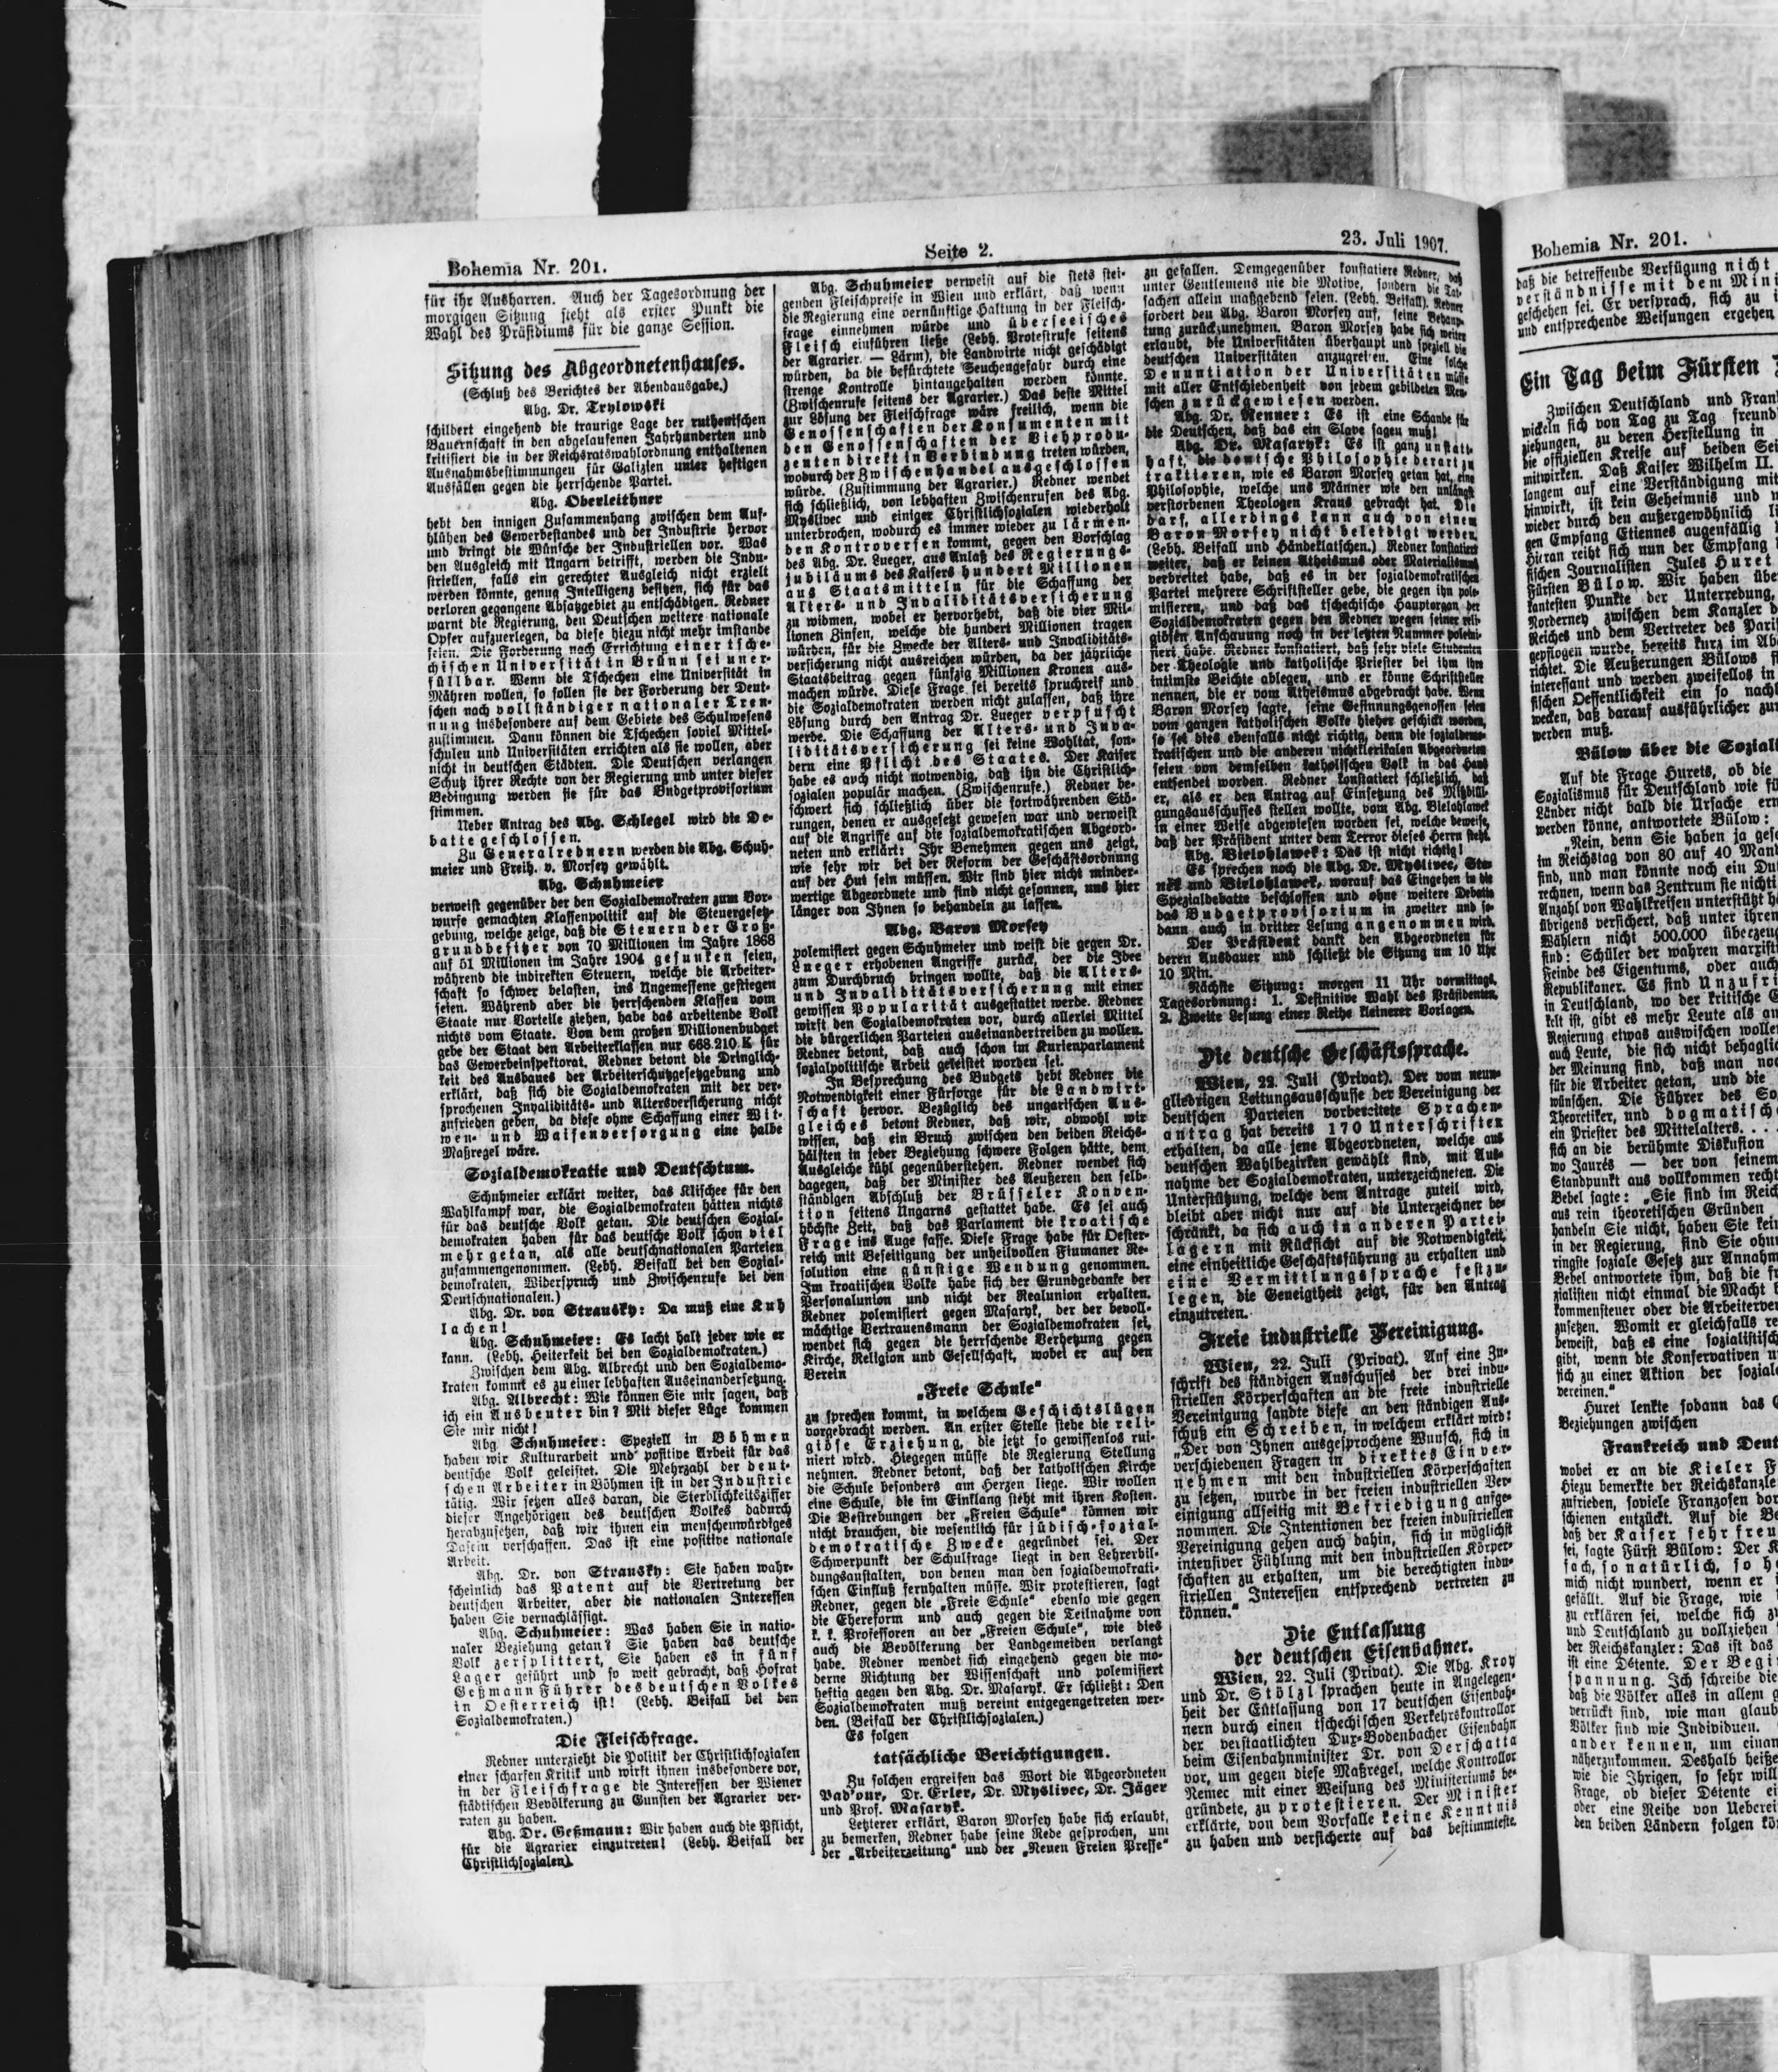 Bohemia Nr. 201.
Seite 2.
23. Juli 1907.
für ihr Ausharren. Auch der Tagesordnung der
morgigen Sitzung steht als erster Punkt die
Wahl des Präsidiums für die ganze Session.
Sitzung des Abgeordnetenhauses.
(Schluß des Berichtes der Abendausgabe.)
Abg. Dr. Trylowski
schildert eingehend die traurige Lage der ruthenischen
Bauernschaft in den abgelaufenen Jahrhunderten und
kritisiert die in der Reichsratswahlordnung enthaltenen
Ausnahmsbestimmungen für Galizien unter heftigen
Ausfällen gegen die herrschende Partei.
Abg. Oberleithner
hebt den innigen Zusammenhang zwischen dem Auf-
blühen des Gewerbestandes und der Industrie hervor
und bringt die Wünsche der Industriellen vor. Was
den Ausgleich mit Ungarn betrifft, werden die Indu-
striellen, falls ein gerechter Ausgleich nicht erzielt
werden könnte, genug Intelligenz besitzen, sich für das
verloren gegangene Absatzgebiet zu entschädigen. Redner
warnt die Regierung, den Deutschen weitere nationale
Opfer aufzuerlegen, da diese hiezu nicht mehr imstande
seien. Die Forderung nach Errichtung einer tsche-
chischen Universität in Brünn sei uner-
füllbar. Wenn die Tschechen eine Universität in
Mähren wollen, so sollen sie der Forderung der Deut-
schen nach vollständiger nationaler Tren-
nung insbesondere auf dem Gebiete des Schulwesens
zustimmen. Dann können die Tschechen soviel Mittel-
schulen und Universitäten errichten als sie wollen, aber
nicht in deutschen Städten. Die Deutschen verlangen
Schutz ihrer Rechte von der Regierung und unter dieser
Bedingung werden sie für das Budgetprovisorium
stimmen.
Ueber Antrag des Abg. Schlegel wird die De-
batte geschlossen.
Zu Generalrednern werden die Abg. Schuh-
meier und Freih. v. Morsey gewählt.
Abg. Schuhmeier
verweist gegenüber der den Sozialdemokraten zum Vor-
wurfe gemachten Klassenpolitik auf die Steuergesetz-
gebung, welche zeige, daß die Steuern der Groß-
grundbesitzer von 70 Millionen im Jahre 1868
auf 51 Millionen im Jahre 1904 gesunken seien,
während die indirekten Steuern, welche die Arbeiter-
schaft so schwer belasten, ins Ungemessene gestiegen
seien. Während aber die herrschenden Klassen vom
Staate nur Vorteile ziehen, habe das arbeitende Volk
nichts vom Staate. Von dem großen Millionenbudget
gebe der Staat den Arbeiterklassen nur 668.210 K für
das Gewerbeinspektorat. Redner betont die Dringlich-
keit des Ausbaues der Arbeiterschutzgesetzgebung und
erklärt, daß sich die Sozialdemokraten mit der ver-
sprochenen Invaliditäts- und Altersversicherung nicht
zufrieden geben, da diese ohne Schaffung einer Wit-
wen- und Waisenversorgung eine halbe
Maßregel wäre.
Sozialdemokratie und Deutschtum.
Schuhmeier erklärt weiter, das Klischee für den
Wahlkampf war, die Sozialdemokraten hätten nichts
für das deutsche Volk getan. Die deutschen Sozial-
demokraten haben für das deutsche Volk schon viel
mehr getan, als alle deutschnationalen Parteien
zusammengenommen. (Lebh. Beifall bei den Sozial-
demokraten, Widerspruch und Zwischenrufe bei den
Deutschnationalen.)
Abg. Dr. von Stransky: Da muß eine Kuh
lachen!
Abg. Schuhmeier: Es lacht halt jeder wie er
kann. (Lebh. Heiterkeit bei den Sozialdemokraten.)
Zwischen dem Abg. Albrecht und den Sozialdemo-
kraten kommt es zu einer lebhaften Auseinandersetzung.
Abg. Albrecht: Wie können Sie mir sagen, daß
ich ein Ausbeuter bin? Mit dieser Lüge kommen
Sie mir nicht!
Abg. Schuhmeier: Speziell in Böhmen
haben wir Kulturarbeit und positive Arbeit für das
deutsche Volk geleistet. Die Mehrzahl der deut-
schen Arbeiter in Böhmen ist in der Industrie
tätig. Wir setzen alles daran, die Sterblichkeitsziffer
dieser Angehörigen des deutschen Volkes dadurch
herabzusetzen, daß wir ihnen ein menschenwürdiges
Dasein verschaffen. Das ist eine positive nationale
Arbeit.
Abg. Dr. von Stransky: Sie haben wahr-
scheinlich das Patent auf die Vertretung der
deutschen Arbeiter, aber die nationalen Interessen
haben Sie vernachlässigt.
Abg. Schuhmeier: Was haben Sie in natio-
naler Beziehung getan? Sie haben das deutsche
Volk zersplittert, Sie haben es in fünf
Lager geführt und so weit gebracht, daß Hofrat
Geßmann Führer des deutschen Volkes
in Oesterreich ist! (Lebh. Beifall bei den
Sozialdemokraten.)
Die Fleischfrage.
Redner unterzieht die Politik der Christlichsozialen
einer scharfen Kritik und wirft ihnen insbesondere vor,
in der Fleischfrage die Interessen der Wiener
städtischen Bevölkerung zu Gunsten der Agrarier ver-
raten zu haben.
Abg. Dr. Geßmann: Wir haben auch die Pflicht,
für die Agrarier einzutreten! (Lebh. Beifall der
Christlichsozialen).
Abg. Schuhmeier verweist auf die stets stei-
genden Fleischpreise in Wien und erklärt, daß wenn
die Regierung eine vernünftige Haltung in der Fleisch-
frage einnehmen würde und überseeisches
Fleisch einführen ließe (Lebh. Protestrufe seitens
der Agrarier. — Lärm), die Landwirte nicht geschädigt
würden, da die befürchtete Seuchengefahr durch eine
strenge Kontrolle hintangehalten werden könnte.
(Zwischenrufe seitens der Agrarier.) Das beste Mittel
zur Lösung der Fleischfrage wäre freilich, wenn die
Genossenschaften der Konsumenten mit
den Genossenschaften der Viehprodu-
zenten direkt in Verbindung treten würden,
wodurch der Zwischenhandel ausgeschlossen
würde. (Zustimmung der Agrarier.) Redner wendet
sich schließlich, von lebhaften Zwischenrufen des Abg.
Myslivec und einiger Christlichsozialen wiederholt
unterbrochen, wodurch es immer wieder zu lärmen-
den Kontroversen kommt, gegen den Vorschlag
des Abg. Dr. Lueger, aus Anlaß des Regierungs-
jubiläums des Kaisers hundert Millionen
aus Staatsmitteln für die Schaffung der
Alters- und Invaliditätsversicherung
zu widmen, wobei er hervorhebt, daß die vier Mil-
lionen Zinsen, welche die hundert Millionen tragen
würden, für die Zwecke der Alters- und Invaliditäts-
versicherung nicht ausreichen würden, da der jährliche
Staatsbeitrag gegen fünfzig Millionen Kronen aus-
machen würde. Diese Frage sei bereits spruchreif und
die Sozialdemokraten werden nicht zulassen, daß ihre
Lösung durch den Antrag Dr. Lueger verpfuscht
werde. Die Schaffung der Alters- und Inva-
liditätsversicherung sei keine Wohltat, son-
dern eine Pflicht des Staates. Der Kaiser
habe es auch nicht notwendig, daß ihn die Christlich-
sozialen populär machen. (Zwischenrufe.) Redner be-
schwert sich schließlich über die fortwährenden Stö-
rungen, denen er ausgesetzt gewesen war und verweist
auf die Angriffe auf die sozialdemokratischen Abgeord-
neten und erklärt: Ihr Benehmen gegen uns zeigt,
wie sehr wir bei der Reform der Geschäftsordnung
auf der Hut sein müssen. Wir sind hier nicht minder-
wertige Abgeordnete und sind nicht gesonnen, uns hier
länger von Ihnen so behandeln zu lassen.
Abg. Baron Morsey
polemisiert gegen Schuhmeier und weist die gegen Dr.
Lueger erhobenen Angriffe zurück, der die Idee
zum Durchbruch bringen wollte, daß die Alters-
und Invaliditätsversicherung mit einer
gewissen Popularität ausgestattet werde. Redner
wirft den Sozialdemokraten vor, durch allerlei Mittel
die bürgerlichen Parteien auseinandertreiben zu wollen.
Redner betont, daß auch schon im Kurienparlament
sozialpolitische Arbeit geleistet worden sei.
In Besprechung des Budgets hebt Redner die
Notwendigkeit einer Fürsorge für die Landwirt-
schaft hervor. Bezüglich des ungarischen Aus-
gleiches betont Redner, daß wir, obwohl wir
wissen, daß ein Bruch zwischen den beiden Reichs-
hälften in jeder Beziehung schwere Folgen hätte, dem
Ausgleiche kühl gegenüberstehen. Redner wendet sich
dagegen, daß der Minister des Aeußeren den selb-
ständigen Abschluß der Brüsseler Konven-
tion seitens Ungarns gestattet habe. Es sei auch
höchste Zeit, daß das Parlament die kroatische
Frage ins Auge fasse. Diese Frage habe für Oester-
reich mit Beseitigung der unheilvollen Fiumaner Re-
solution eine günstige Wendung genommen.
Im kroatischen Volke habe sich der Grundgedanke der
Personalunion und nicht der Realunion erhalten.
Redner polemisiert gegen Masaryk, der der bevoll-
mächtige Vertrauensmann der Sozialdemokraten sei,
wendet sich gegen die herrschende Verhetzung gegen
Kirche, Religion und Gesellschaft, wobei er auf den
Verein
„Freie Schule“
zu sprechen kommt, in welchem Geschichtslügen
vorgebracht werden. An erster Stelle stehe die reli-
giöse Erziehung, die jetzt so gewissenlos rui-
niert wird. Hiegegen müsse die Regierung Stellung
nehmen. Redner betont, daß der katholischen Kirche
die Schule besonders am Herzen liege. Wir wollen
eine Schule, die im Einklang steht mit ihren Kosten.
Die Bestrebungen der „Freien Schule“ können wir
nicht brauchen, die wesentlich für jüdisch-sozial-
demokratische Zwecke gegründet sei. Der
Schwerpunkt der Schulfrage liegt in den Lehrerbil-
dungsanstalten, von denen man den sozialdemokrati-
schen Einfluß fernhalten müsse. Wir protestieren, sagt
Redner, gegen die „Freie Schule“ ebenso wie gegen
die Ehereform und auch gegen die Teilnahme von
k. k. Professoren an der „Freien Schule“, wie dies
auch die Bevölkerung der Landgemeiden verlangt
habe. Redner wendet sich eingehend gegen die mo-
derne Richtung der Wissenschaft und polemisiert
heftig gegen den Abg. Dr. Masaryk. Er schließt: Den
Sozialdemokraten muß vereint entgegengetreten wer-
den. (Beifall der Christlichsozialen.)
Es folgen
tatsächliche Berichtigungen.
Zu solchen ergreifen das Wort die Abgeordneten
Pad'our, Dr. Erler, Dr. Myslivec, Dr. Jäger
und Prof. Masaryk.
Letzterer erklärt, Baron Morsey habe sich erlaubt,
zu bemerken, Redner habe seine Rede gesprochen, um
der „Arbeiterzeitung“ und der „Neuen Freien Presse“
zu gefallen. Demgegenüber konstatiere Redner, daß
unter Gentlemens nie die Motive, sondern die Tat-
sachen allein maßgebend seien. (Lebh. Beifall). Redner
fordert den Abg. Baron Morsey auf, seine Behaup-
tung zurückzunehmen. Baron Morsey habe sich weiter
erlaubt, die Universitäten überhaupt und speziell die
deutschen Universitäten anzugreifen. Eine solche
Denuntiation der Universitäten müsse
mit aller Entschiedenheit von jedem gebildeten Men-
schen zurückgewiesen werden.
Abg. Dr. Renner: Es ist eine Schande für
die Deutschen, daß das ein Slave sagen muß!
Abg. Dr. Masaryk: Es ist ganz unstatt-
haft, die deutsche Philosophie derart zu
traktieren, wie es Baron Morsey getan hat, eine
Philosophie, welche uns Männer wie den unlängst
verstorbenen Theologen Kraus gebracht hat. Die
darf, allerdings kann auch von einem
Baron Morsey nicht beleidigt werden.
(Lebh. Beifall und Händeklatschen.) Redner konstatiert
weiter, daß er keinen Atheismus oder Materialismus
verbreitet habe, daß es in der sozialdemokratischen
Partei mehrere Schriftsteller gebe, die gegen ihn pole-
misieren, und daß das tschechische Hauptorgan der
Sozialdemokraten gegen den Redner wegen seiner reli-
giösen Anschauung noch in der letzten Nummer polemi-
siert habe. Redner konstatiert, daß sehr viele Studenten
der Theologie und katholische Priester bei ihm ihre
intimste Beichte ablegen, und er könne Schriftsteller
nennen, die er vom Atheismus abgebracht habe. Wenn
Baron Morsey sagte, seine Gesinnungsgenossen seien
vom ganzen katholischen Volke hieher geschickt worden,
so sei dies ebenfalls nicht richtig, denn die sozialdemo-
kratischen und die anderen nichtklerikalen Abgeordneten
seien von demselben katholischen Volk in das Haus
entsendet worden. Redner konstatiert schließlich, daß
er, als er den Antrag auf Einsetzung des Mißbilli-
gungsausschusses stellen wollte, vom Abg. Bielohlawek
in einer Weise abgewiesen worden sei, welche beweise,
daß der Präsident unter dem Terror dieses Herrn steht.
Abg. Bielohlawek: Das ist nicht richtig!
Es sprechen noch die Abg. Dr. Myslivec,
und Bielohlawek, worauf das Eingehen in die
Spezialdebatte beschlossen und ohne weitere Debatte
das Budgetprovisorium in zweiter und so-
dann auch in dritter Lesung angenommen wird.
Der Präsident dankt den Abgeordneten für
deren Ausdauer und schließt die Sitzung um 10 Uhr
10 Min.
Nächste Sitzung: morgen 11 Uhr vormittags.
Tagesordnung: 1. Definitive Wahl des Präsidenten.
2. Zweite Lesung einer Reihe kleinerer Vorlagen.
Die deutsche Geschäftssprache.
Wien, 22. Juli (Privat). Der vom neun-
gliedrigen Leitungsausschusse der Vereinigung der
deutschen Parteien vorbereitete Sprachen-
antrag hat bereits 170 Unterschriften
erhalten, da alle jene Abgeordneten, welche aus
deutschen Wahlbezirken gewählt sind, mit Aus-
nahme der Sozialdemokraten, unterzeichneten. Die
Unterstützung, welche dem Antrage zuteil wird,
bleibt aber nicht nur auf die Unterzeichner be-
schränkt, da sich auch in anderen Partei-
lagern mit Rücksicht auf die Notwendigkeit,
eine einheitliche Geschäftsführung zu erhalten und
eine Vermittlungssprache festzu-
legen, die Geneigtheit zeigt, für den Antrag
einzutreten.
Freie industrielle Vereinigung.
Wien, 22. Juli (Privat). Auf eine Zu-
schrift des ständigen Ausschusses der drei indu-
striellen Körperschaften an die freie industrielle
Vereinigung sandte diese an den ständigen Aus-
schuß ein Schreiben, in welchem erklärt wird:
„Der von Ihnen ausgesprochene Wunsch, sich in
verschiedenen Fragen in direktes Einver-
nehmen mit den industriellen Körperschaften
zu setzen, wurde in der freien industriellen Ver-
einigung allseitig mit Befriedigung aufge-
nommen. Die Intentionen der freien industriellen
Vereinigung gehen auch dahin, sich in möglichst
intensiver Fühlung mit den industriellen Körper-
schaften zu erhalten, um die berechtigten indu-
striellen Interessen entsprechend vertreten zu
können.“
Die Entlassung
der deutschen Eisenbahner.
Wien, 22. Juli (Privat). Die Abg. Kroy
und Dr. Stölzl sprachen heute in Angelegen-
heit der Entlassung von 17 deutschen Eisenbah-
nern durch einen tschechischen Verkehrskontrollor
der verstaatlichten Dux-Bodenbacher Eisenbahn
beim Eisenbahnminister Dr. von Derschatta
vor, um gegen diese Maßregel, welche Kontrollor
Nemec mit einer Weisung des Ministeriums be-
gründete, zu protestieren. Der Minister
erklärte, von dem Vorfalle keine Kenntnis
zu haben und versicherte auf das bestimmteste,
Bohemia Nr. 201.
daß die betreffende Verfügung nicht
verständnisse mit dem Mini
geschehen sei. Er versprach, sich zu i
und entsprechende Weisungen ergehen
Ein Tag beim Fürsten
Zwischen Deutschland und Fran
wickeln sich von Tag zu Tag freund
ziehungen, zu deren Herstellung in
die offiziellen Kreise auf beiden Sei
mitwirken. Daß Kaiser Wilhelm II.
langem auf eine Verständigung mit
hinwirkt, ist kein Geheimnis und
wieder durch den außergewöhnlich
gen Empfang Etiennes augenfällig
Hieran reiht sich nun der Empfang
sischen Journalisten Jules Huret
Fürsten Bülow. Wir haben übe
kantesten Punkte der Unterredung,
Norderney zwischen dem Kanzler d
Reiches und dem Vertreter des Paris
gepflogen wurde, bereits kurz im Ab
richtet. Die Aeußerungen Bülows
interessant und werden zweifellos in
sischen Oeffentlichkeit ein so nach
wecken, daß darauf ausführlicher zur
werden muß.
Bülow über die Soziali
Auf die Frage Hurets, ob die
Sozialismus für Deutschland wie fü
Länder nicht bald die Ursache ern
werden könne, antwortete Bülow:
„Nein, denn Sie haben ja gese
im Reichstag von 80 auf 40 Mand
sind, und man könnte noch ein Du
rechnen, wenn das Zentrum sie nicht
Anzahl von Wahlkreisen unterstützt
übrigens versichert, daß unter ihren
Wählern nicht 500.000 überzeug
sind: Schüler der wahren marxisti
Feinde des Eigentums, oder auch
Republikaner. Es sind Unzufri
in Deutschland, wo der kritische G
kelt ist, gibt es mehr Leute als an
Regierung etwas auswischen wollen
auch Leute, die sich nicht behaglic
der Meinung sind, daß man noc
für die Arbeiter getan, und die
wünschen. Die Führer des So
Theoretiker, und dogmatisch
ein Priester des Mittelalters. . . .
sich an die berühmte Diskussion
wo Jaurés — der von seinem
Standpunkt aus vollkommen recht
Bebel sagte: „Sie sind im Reich
aus rein theoretischen Gründen
handeln Sie nicht, haben Sie kein
in der Regierung, sind Sie ohn
ringste soziale Gesetz zur Annahm
Bebel antwortete ihm, daß die fr
zialisten nicht einmal die Macht
kommensteuer oder die Arbeiterver
zusetzen. Womit er gleichfalls re
beweist, daß es eine sozialistisch
gibt, wenn die Konservativen
sich zu einer Aktion der soziale
vereinen.“
Huret lenkte sodann das G
Beziehungen zwischen
Frankreich und Deut
wobei er an die Kieler F
Hiezu bemerkte der Reichskanzle
zufrieden, soviele Franzosen dor
schienen entzückt. Auf die Be
daß der Kaiser sehr freu
sei, sagte Fürst Bülow: Der K
fach, so natürlich, so h
mich nicht wundert, wenn er
gefällt. Auf die Frage, wie
zu erklären sei, welche sich z
und Deutschland zu vollziehen
der Reichskanzler: Das ist das
ist eine Détente. Der Begi
spannung. Ich schreibe die
daß die Völker alles in allem g
verrückt sind, wie man glaub
Völker sind wie Individuen.
ander kennen, um einan
näherzukommen. Deshalb heiße
wie die Ihrigen, so sehr will
Frage, ob dieser Détente ei
oder eine Reihe von Ueberei
den beiden Ländern folgen kö